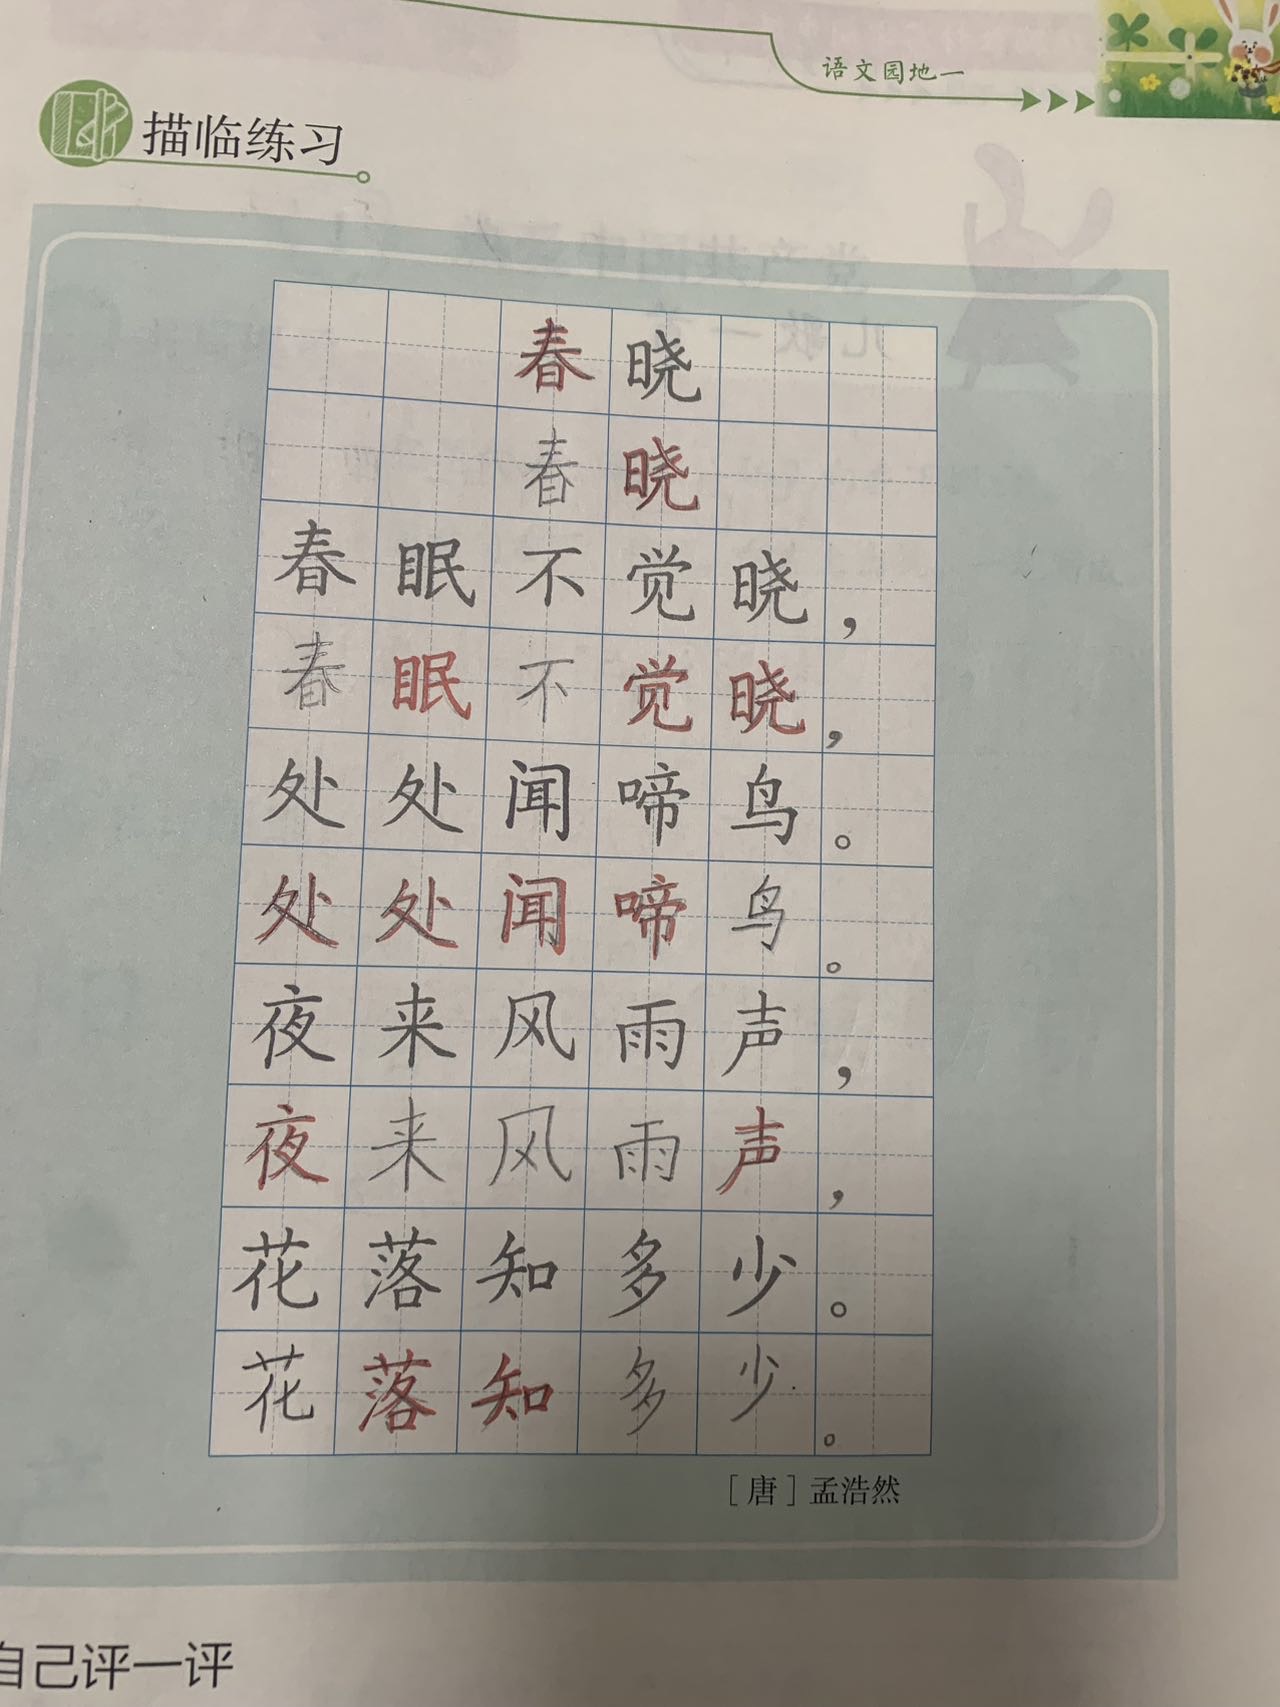 语文园地一
描临练习
春晓
春晓
春眠不觉晓，
春眠不觉晓，
处处闻啼鸟。
处处闻啼鸟。
夜来风雨声，
夜来风雨声，
花落知多少。
花落知多少。
［唐］孟浩然
自己评一评